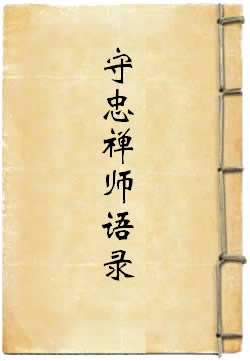 守忠禅师语录